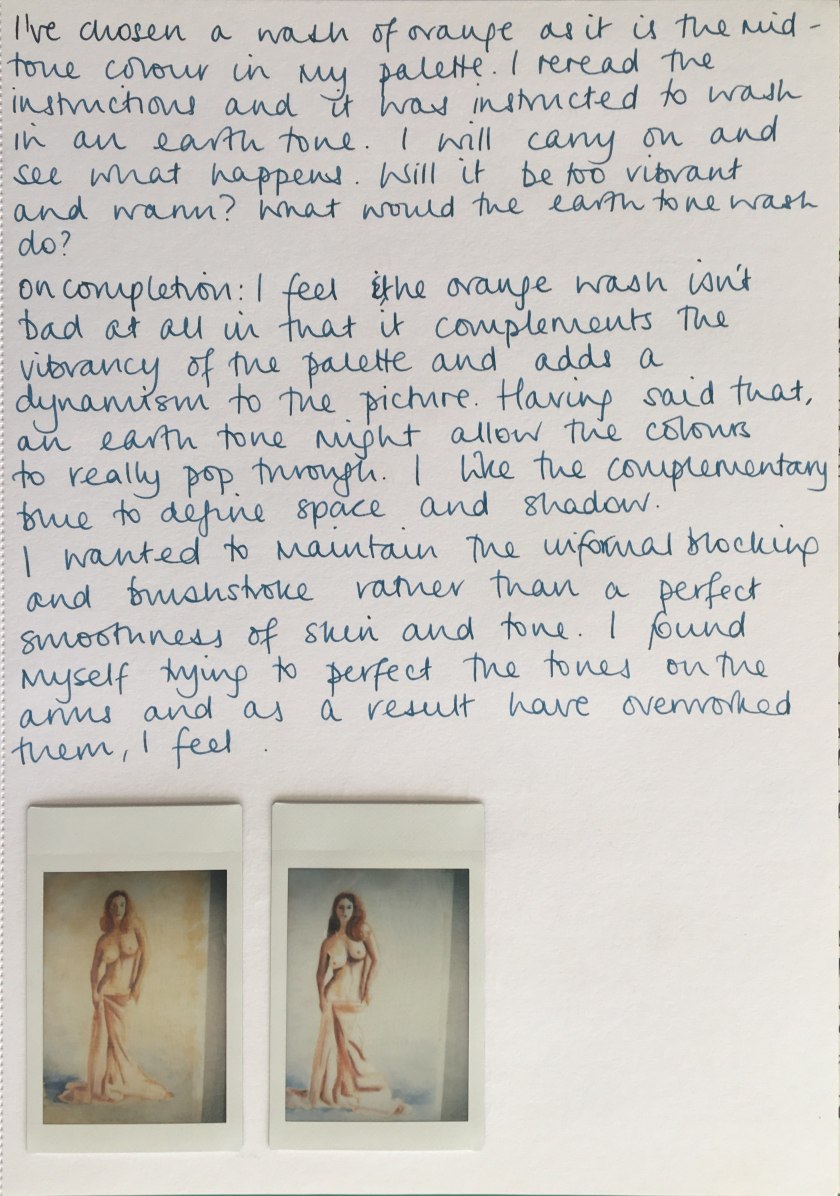 I've chosen a wash of orange as it is the mid-
tone colour in my palette. I reread the
instructions and it was instructed to wash
in an earth tone. I will carry on and
see what happens. Will it be too vibrant
and warm? What would the earth tone wash
do?
On completion: I feel the orange wash isn't
bad at all in that it complements the
vibrancy of the palette and adds a
dynamism to the picture. Having said that,
an earth tone might allow the colours
to really pop through. I like the complementary
blue to define space and shadow.
I wanted to maintain the informal blocking
and brushstroke rather than a perfect
smoothness of skin and tone. I found
myself trying to perfect the tones on the
arms and as a result have overworked
them, I feel.